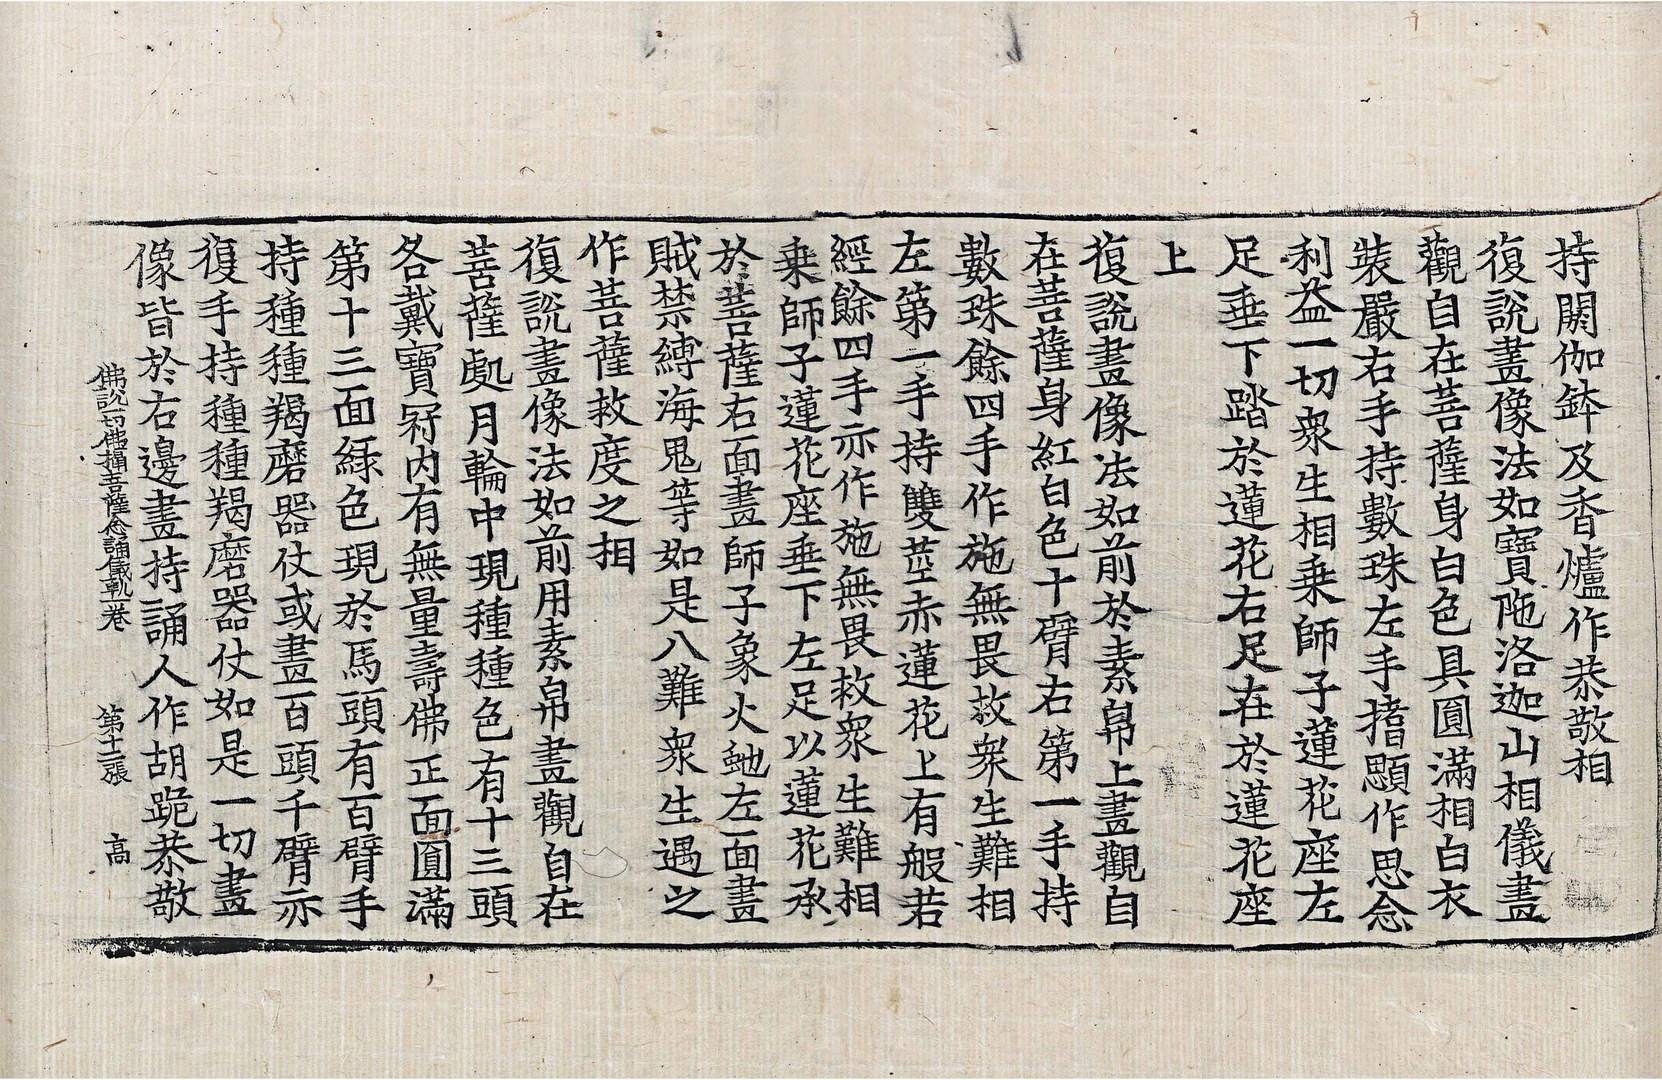 持閼伽鉢及香爐作恭敬相
復說畫像法如寶陁洛迦山相儀畫
觀自在菩薩身白色具圓滿相白衣
裝嚴右手持數珠左手揞顋作思念
利益一切衆生相乗師子蓮花座左
足垂下踏於蓮花右足在於蓮花座
上
復說畫像法如前於素帛上畫觀自
在菩薩身紅白色十臂右第一手持
數珠餘四手作施無畏救衆生難相
左第一手持雙莖赤蓮花上有般若
經餘四手亦作施無畏救衆生難相
乗師子蓮花座垂下左足以蓮花承
於菩薩右面畫師子象火虵左面畫
賊禁縛海鬼等如是八難衆生遇之
作菩薩救度之相
復說畫像法如前用素帛畫觀自在
菩薩處月輪中現種種色有十三頭
各戴寶冠内有無量壽佛正面圓滿
第十三面緑色現於馬頭有百臂手
持種種羯磨器仗或畫百頭千臂亦
復手持種種羯磨器仗如是一切畫
像皆於右邊畫持誦人作胡跪恭敬
佛說一切佛攝菩薩念誦儀軌卷 第十二張 高